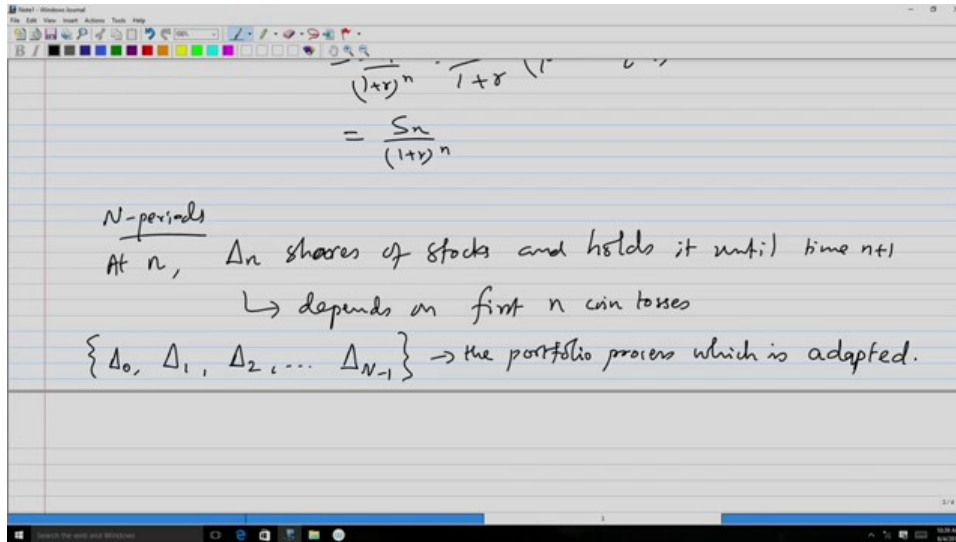 Note1 - Windows Journal
File Edit View Insert Actions Tools Help
B I
(1+r)ⁿ 1+r
= Sn / (1+r)ⁿ
N-periods
At n, Δn shares of stocks and holds it until time n+1
↳ depends on first n coin tosses
{Δ₀, Δ₁, Δ₂, ... Δ_N-1} → the portfolio process which is adapted.
Search the web and Windows